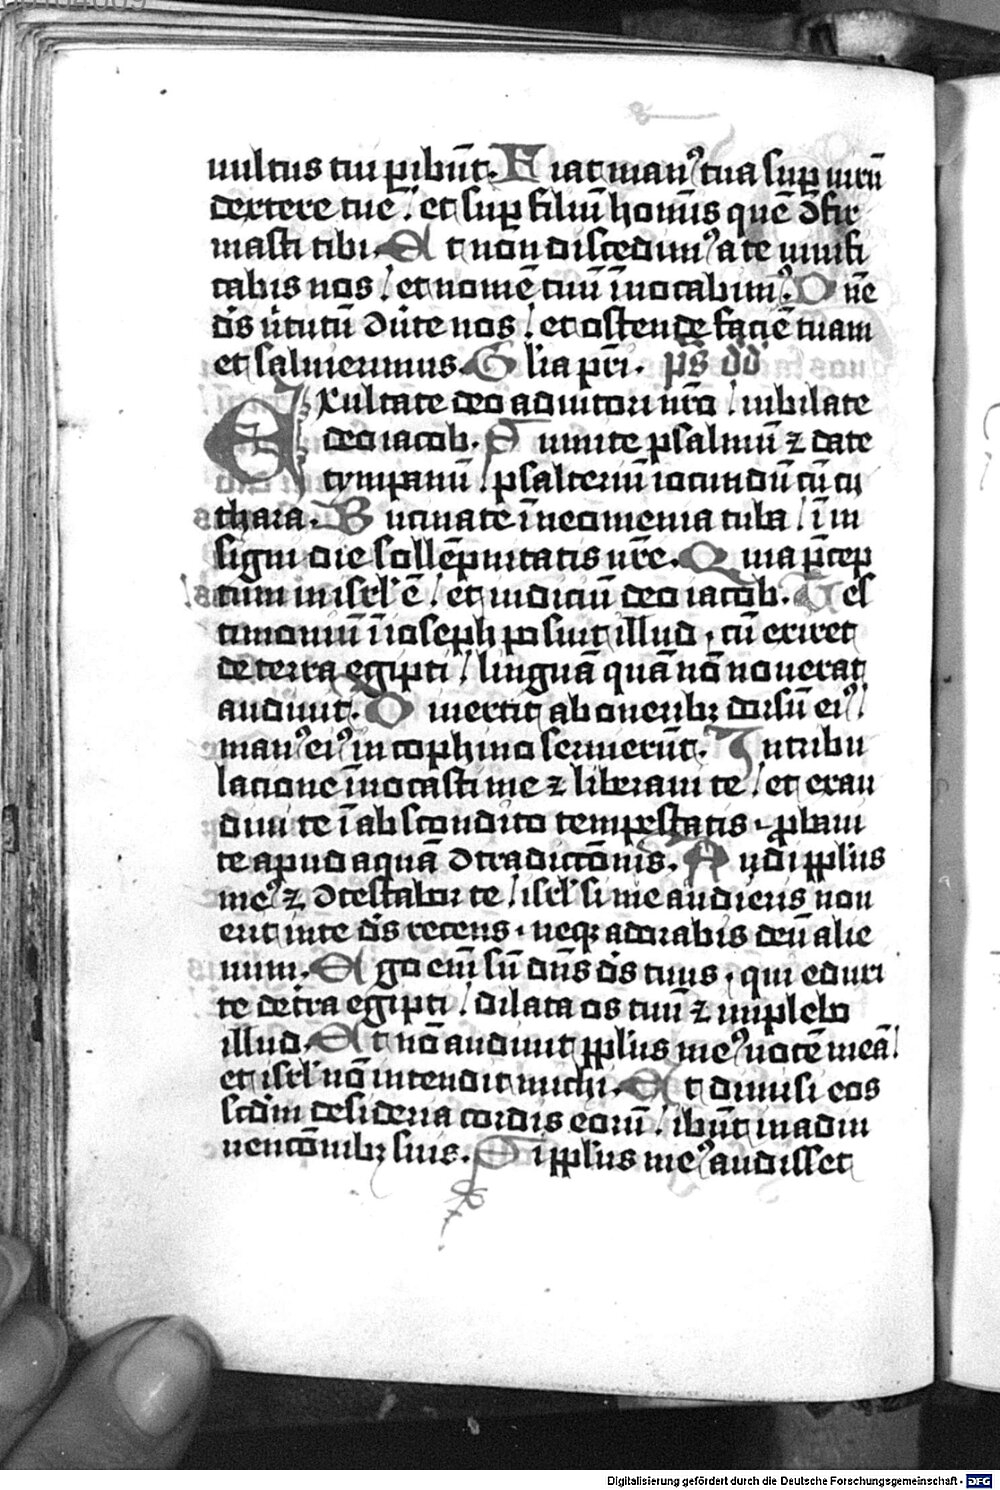 vultus tui ꝑibūt. Fiat manꝰ tua suꝑ uirū
dextere tue᷒ ! et suꝑ filiū hoıs quē ꝯfir
masti tibi. Et non discedimꝰ a te uiuifi
cabis nos ! et nomē tuū īuocabimꝰ. Dn̄e
ds̄ ũtutū ꝯũte nos ! et ostende faciē tuam
et salui erimus. Glia pr̄i. ps̄ dd
Exultate deo adiutori nr̄o ! iubilate
deo iacob. Sumite psalmū ⁊ date
tympanū ! psalteriū iocundū cū cy
thara. Bucinate ī neomenia tuba ! ī in
signi die sollēpnitatis ur̄e. Quia p̄cep
tum in isrl̄ ē ! et iudiciū deo iacob. Tes
timoniū ī ioseph posuit illud, cū exiret
de terra egipti ! linguā quā nō nouerat
audiuit. Diuertit ab oneribꝫ dorsū eiꝰ !
manꝰ eiꝰ in cophino seruierūt. In tribu
lacione īuocasti me ⁊ liberaui te ! et exau
diui te ī abscondito tempestatis, ꝓbaui
te apud aquā ꝯtradictōnis. Audi pplus
meꝰ ⁊ ꝯtestabor te ! isrl̄ si me audieris non
erit in te ds̄ recens, neqꝫ adorabis deū alie
num. Ego em̄ sū dn̄s ds̄ tuus, qui eduxi
te de tr̄ra egipti ! dilata os tuū ⁊ implebo
illud. Et nō audiuit pplus meꝰ uocē meā !
et isrl̄ nō intendit michi. Et dimisi eos
scdm desideria cordis eorū ! ibūt in adin
uencōnibꝫ suis. Si pplus meꝰ audisset
Digitalisierung gefördert durch die Deutsche Forschungsgemeinschaft - DFG